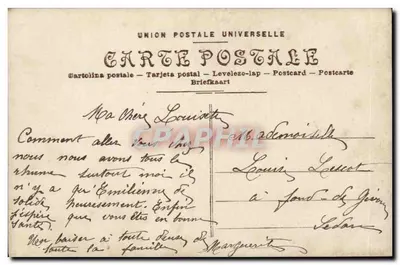 UNION POSTALE UNIVERSELLE
CARTE POSTALE
Cartolina postale – Tarjeta postal – Levelezo-lap – Postcard – Postcarte
Briefkaart
Ma Chère Louisette
Comment aller vous
nous nous avons tous le
rhume surtout moi il
n'y a qu'Emilienne de
solide heureusement. Enfin
j'espère que vous êtes en bonne
santé.
Un baiser à toute deux de
toute la famille
Marguerite
Mademoiselle
Louise Lescot
à fond de Givonne
Sedan